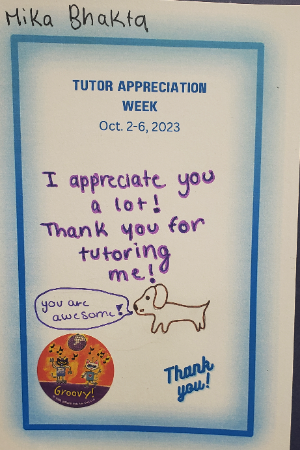 Mika Bhakta
TUTOR APPRECIATION
WEEK
Oct. 2-6, 2023
I appreciate you
a lot!
Thank you for
tutoring
me!
you are
awesome!
Groovy!
Thank
you!